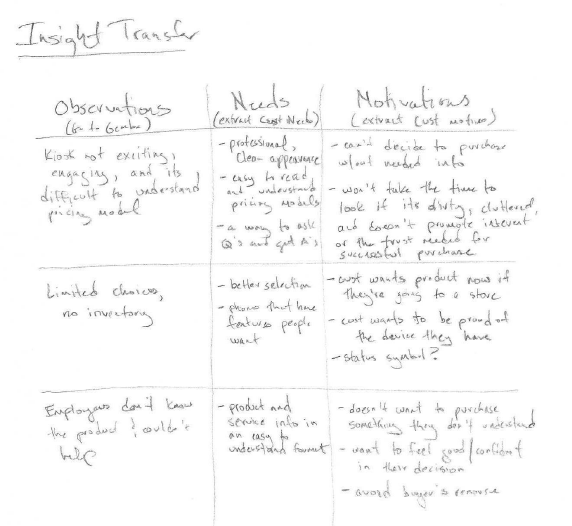 Insight Transfer
Observations
(Go to Gemba)
Needs
(extract Cust Needs)
Motivations
(extract Cust motives)
Kiosk not exciting,
engaging, and its
difficult to understand
pricing model
- professional,
clean appearance
- easy to read
and understand
pricing models
- a way to ask
Q's and get A's
- can't decide to purchase
w/out needed info
- won't take the time to
look if its dirty, cluttered,
and doesn't promote interest
or the trust needed for
successful purchase
Limited choices,
no inventory
- better selection
- phones that have
features people
want
- cust wants product now if
they're going to a store
- cust wants to be proud of
the device they have
- status symbol?
Employees don't know
the product & couldn't
help
- product and
service info in
an easy to
understand format
- doesn't want to purchase
something they don't understand
- want to feel good/confident
in their decision
- avoid buyer's remorse